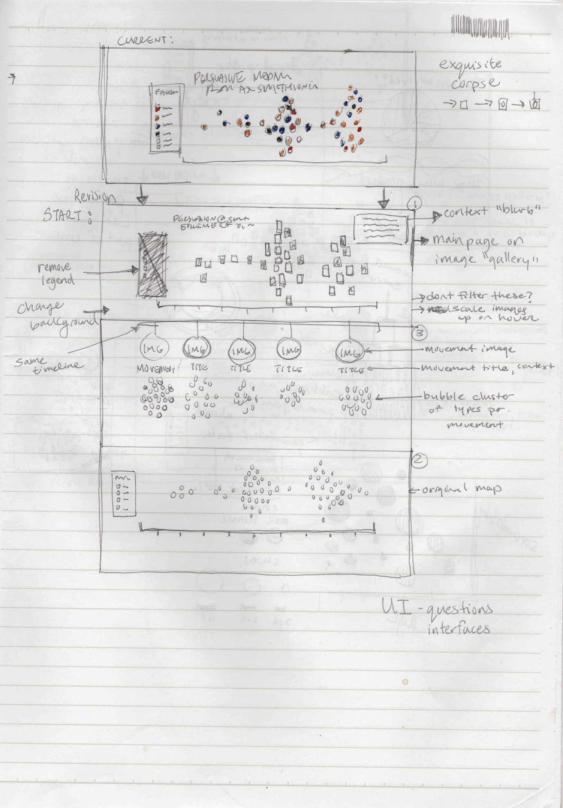 CURRENT:
exquisite
corpse
Revision
START:
①
context "blurb"
main page on
image "gallery"
remove
legend
dont filter these?
scale images
up on hover
change
background
③
same
timeline
IMG IMG IMG IMG IMG
movement image
MOVEMENT TITLE TITLE TITLE TITLE
movement title, context
bubble cluster
of types per
movement
②
original map
UI - questions
interfaces